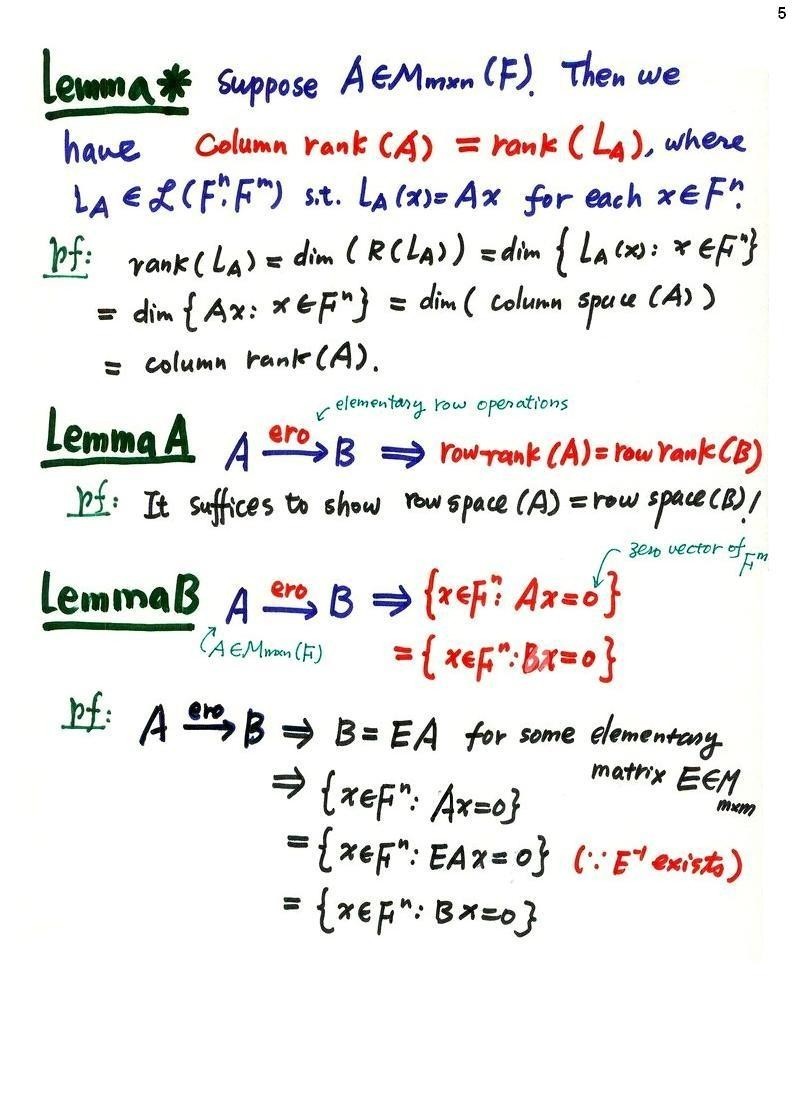 5
Lemma* Suppose A∈Mmxn(F). Then we
have Column rank(A) = rank(LA), where
LA ∈ L(Fⁿ, Fᵐ) s.t. LA(x)=Ax for each x∈Fⁿ.
pf: rank(LA) = dim(R(LA)) = dim{LA(x): x∈Fⁿ}
= dim{Ax: x∈Fⁿ} = dim(column space(A))
= column rank(A).
elementary row operations
Lemma A A ero→ B ⇒ row rank(A)=row rank(B)
pf: It suffices to show row space(A)=row space(B)!
zero vector of Fᵐ
Lemma B A ero→ B ⇒ {x∈Fⁿ: Ax=0}
A∈Mmxn(F) = {x∈Fⁿ: Bx=0}
pf: A ero→ B ⇒ B=EA for some elementary
matrix E∈Mmxm
⇒ {x∈Fⁿ: Ax=0}
= {x∈Fⁿ: EAx=0} (∵ E⁻¹ exists)
= {x∈Fⁿ: Bx=0}